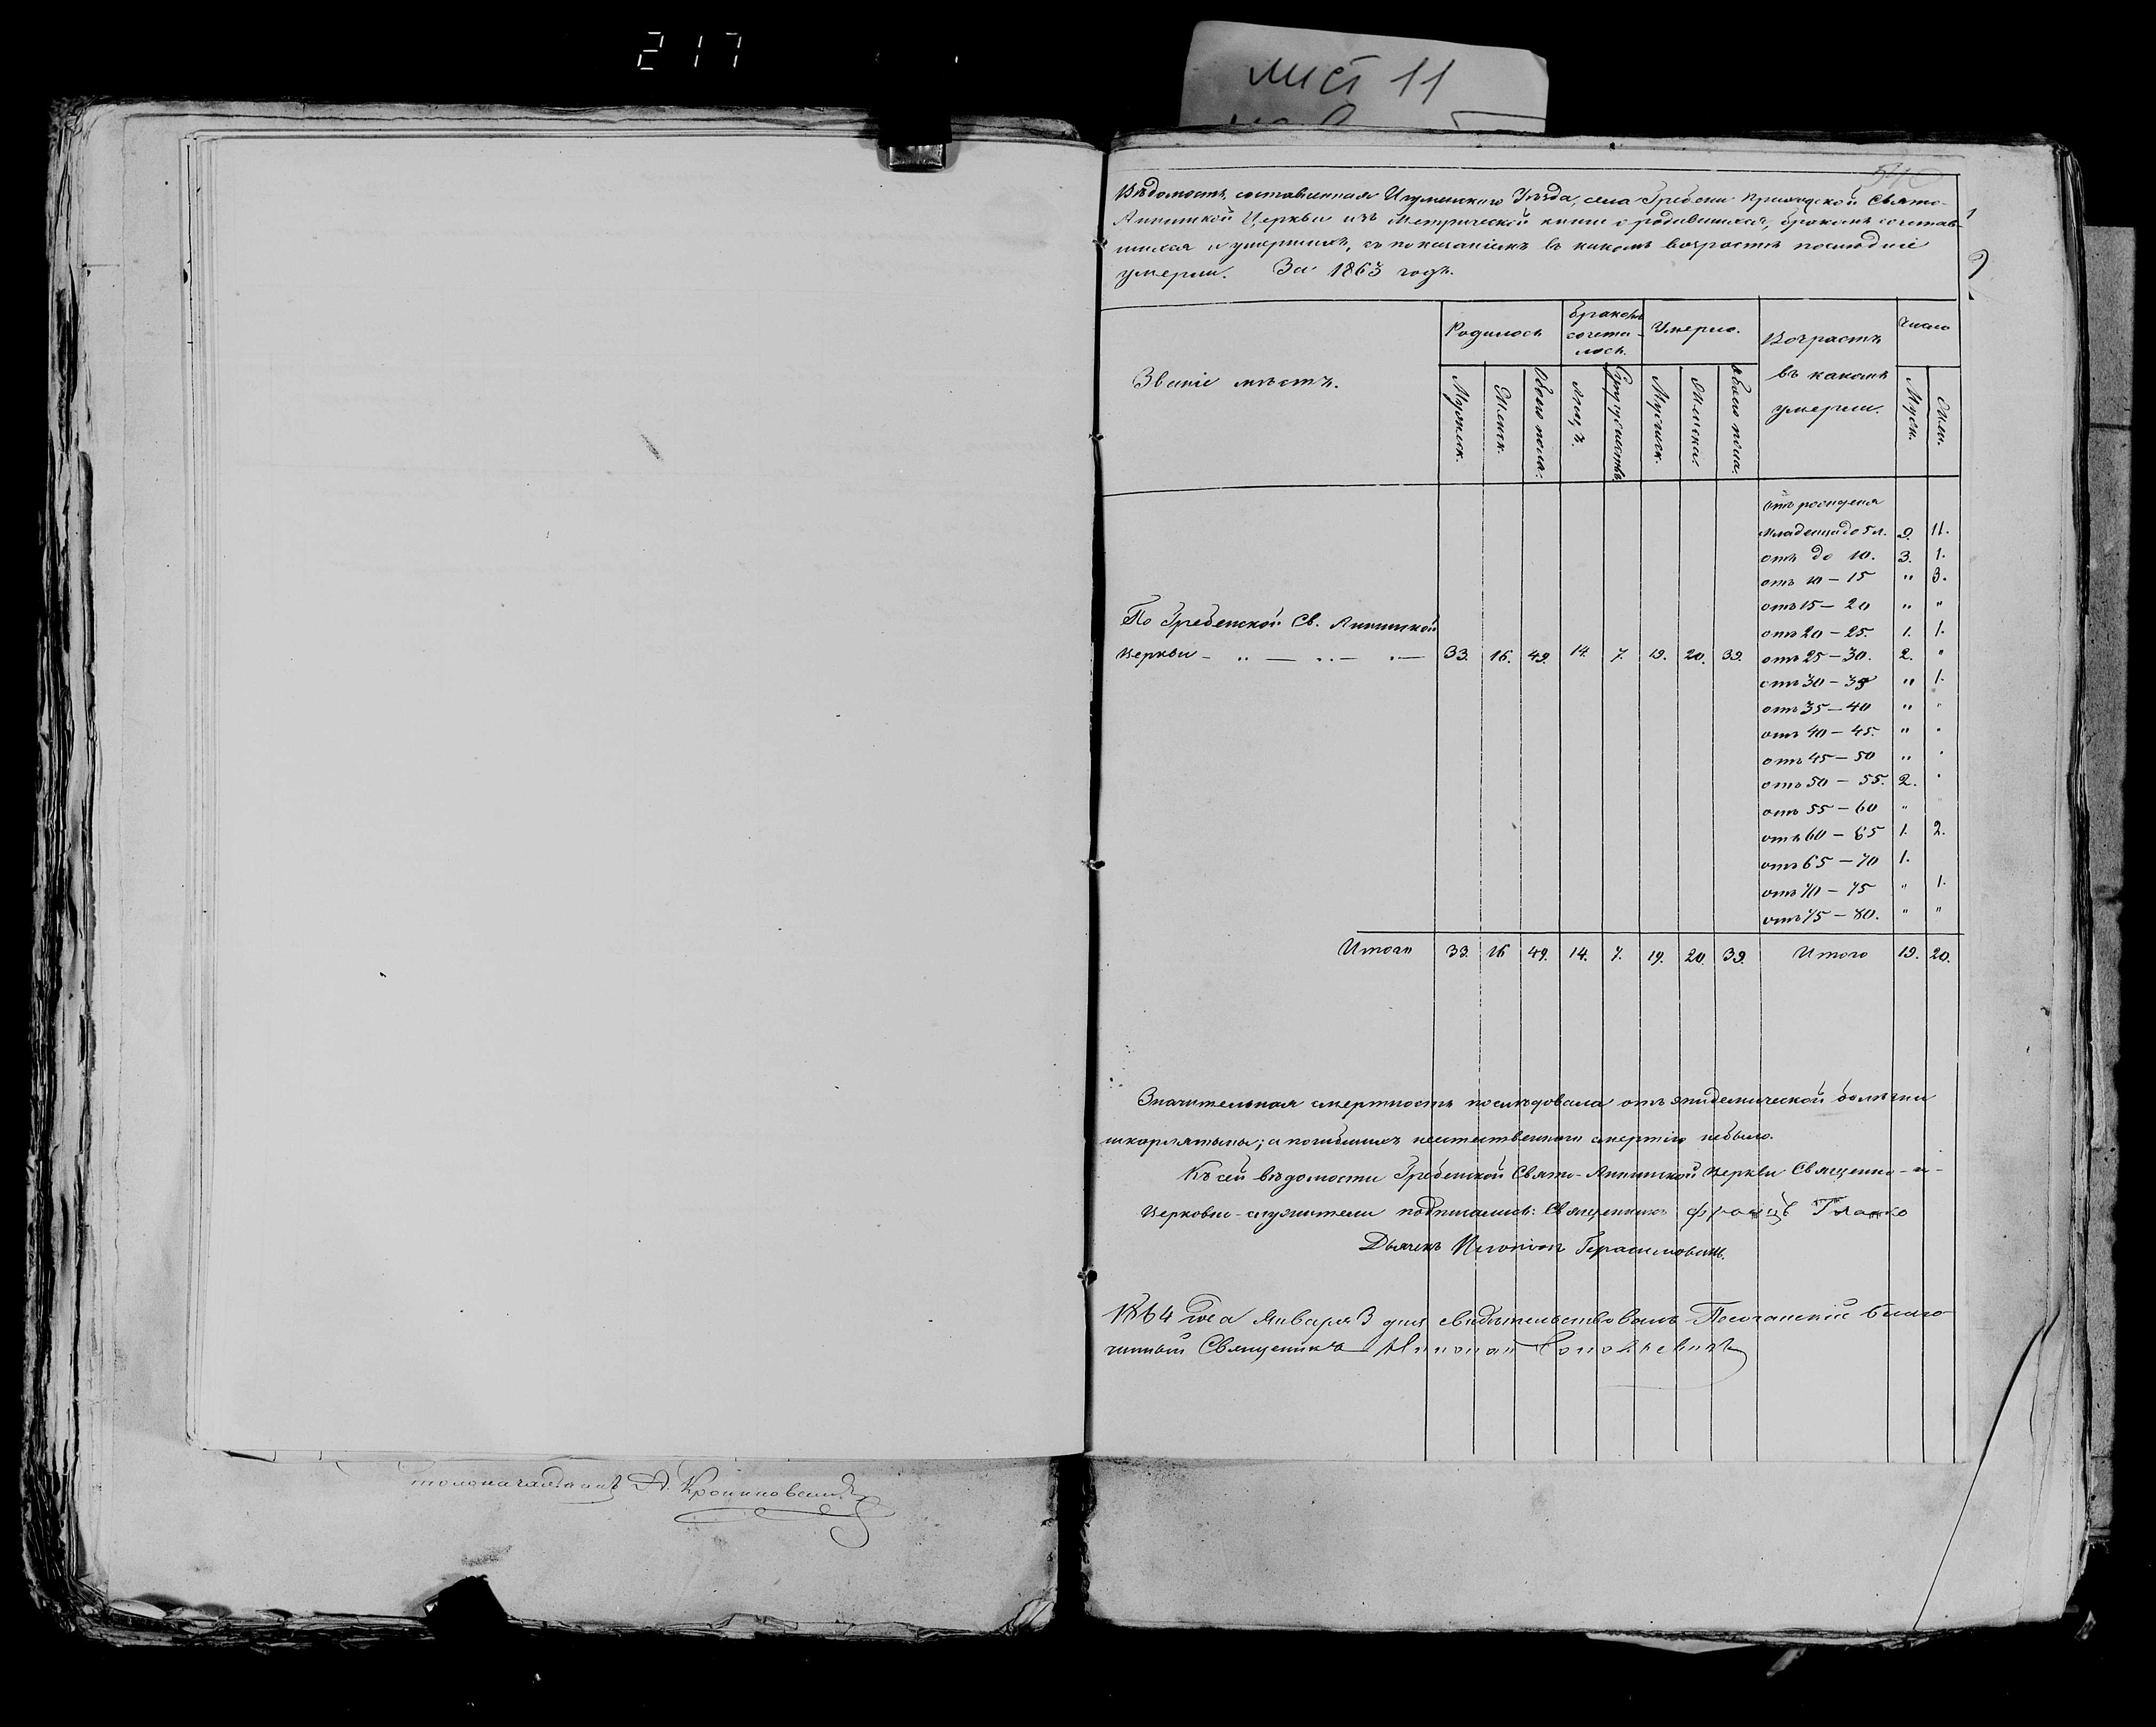 217
лист 11
Вѣдомость, составленная Игуменскаго Уѣзда, села Гребени приходской Свято-
Аннинской Церкви изъ Метрической книги о родившихся, бракомъ сочетав-
шихся и умершихъ, съ показаніемъ въ какомъ возрастѣ последніе
умерли. За 1863 годъ.
2
Званіе мѣстъ.
Родилось
Бракомъ
сочета-
лось.
Умерло.
Возрастъ
въ какомъ
умерли.
Число
Мужеск.
Женск.
Обоего пола.
Лицъ.
Супружествъ
Мужеск.
Женска.
Обоего пола.
Муж.
Жен.
Отъ рожденія
младенца до 5 л. 9. 11.
отъ до 10. 3. 1.
отъ 10 – 15 " 3.
отъ 15 – 20 " "
отъ 20 – 25. 1. 1.
По Гребенской Св. Аннинской
Церкви – „ — „ — „ — 33. 16. 49. 14. 7. 19. 20. 39. отъ 25 – 30. 2. "
отъ 30 – 35 " 1.
отъ 35 – 40 " "
отъ 40 – 45. " "
отъ 45 – 50 " "
отъ 50 – 55. 2. "
отъ 55 – 60 "
отъ 60 – 65 1. 2.
отъ 65 – 70 1.
отъ 70 – 75 " 1.
отъ 75 – 80. " "
Итого 33. 16 49. 14. 7. 19. 20. 39. Итого 19. 20.
Значительная смертность последовала отъ эпидемической болѣзни
шкарлятыны; а погибшихъ неестественною смертію небыло.
Къ сей вѣдомости Гребенской Свято-Аннинской Церкви Священно-и-
Церковно-служители подписались: Священникъ Францъ Гласко
Дьячекъ Герасимовичъ.
1864 года Января 3 дня свидѣтельствовалъ благо-
чинный Священникъ
столоначальникъ